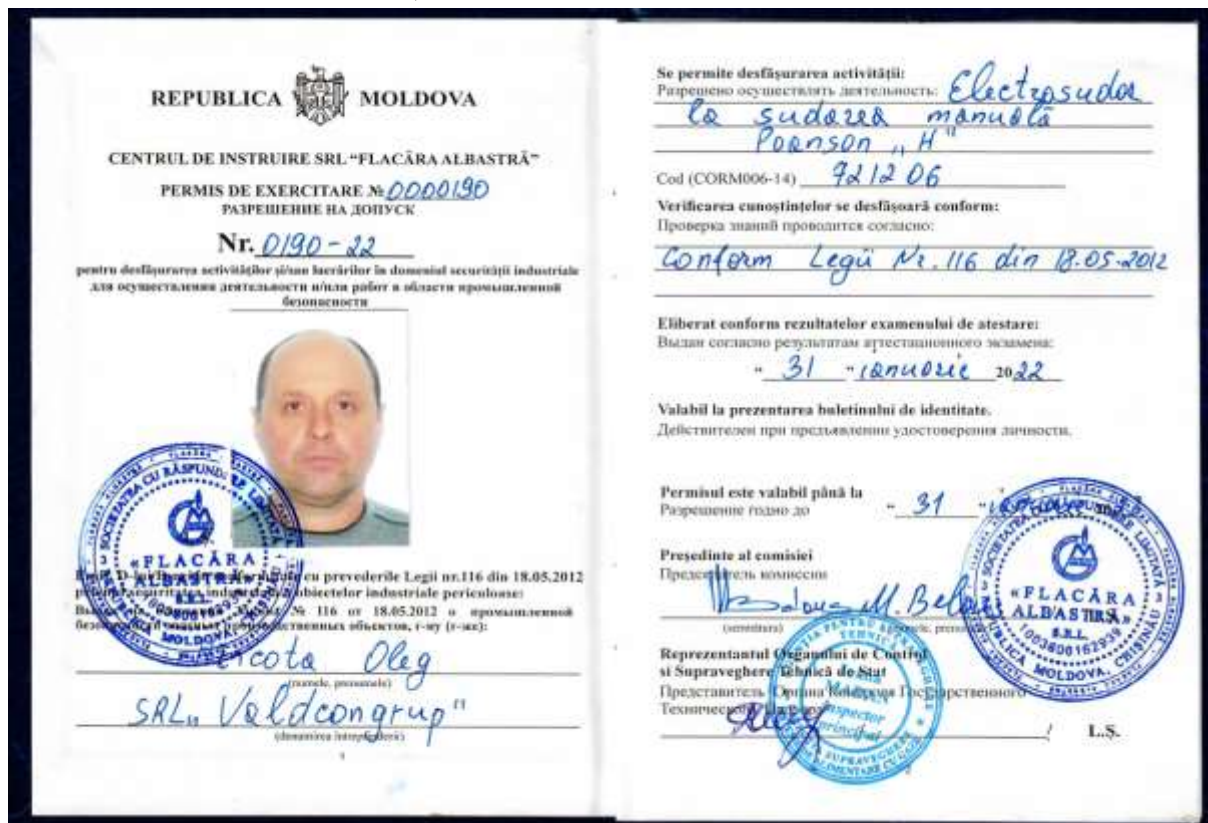 REPUBLICA MOLDOVA
CENTRUL DE INSTRUIRE SRL “FLACĂRA ALBASTRĂ”
PERMIS DE EXERCITARE № 0000190
РАЗРЕШЕНИЕ НА ДОПУСК
Nr. 0190-22
pentru desfăşurarea activităţilor şi/sau lucrărilor în domeniul securităţii industriale
для осуществления деятельности и/или работ в области промышленной
безопасности
SOCIETATEA CU RĂSPUNDERE LIMITATĂ
«FLACĂRA
ALBASTRĂ»
cu prevederile Legii nr.116 din 18.05.2012
obiectelor industriale periculoase:
№ 116 от 18.05.2012 о промышленной
производственных объектов, г-ну (г-же):
Oleg
(numele, prenumele)
SRL „Valdcongrup"
(denumirea întreprinderii)
Se permite desfăşurarea activităţii:
Разрешено осуществлять деятельность: Electrosudor
la sudarea manuală
Poanson „H"
Cod (CORM006-14) 721206
Verificarea cunoştinţelor se desfăşoară conform:
Проверка знаний проводится согласно:
Conform Legii Nr. 116 din 18.05.2012
Eliberat conform rezultatelor examenului de atestare:
Выдан согласно результатам аттестационного экзамена:
" 31 " ianuarie 2022
Valabil la prezentarea buletinului de identitate.
Действителен при предъявлении удостоверения личности.
Permisul este valabil până la
Разрешение годно до " 31 "
Preşedinte al comisiei
Председатель комиссии
(semnătura)
SOCIETATEA CU RĂSPUNDERE LIMITATĂ
«FLACĂRA
ALBASTRĂ»
S.R.L.
REPUBLICA MOLDOVA, CHIŞINĂU
Reprezentantul Organului de Control
si Supraveghere Tehnică de Stat
Представитель Органа Контроля Государственного
Технического
Inspector
principal
L.Ş.